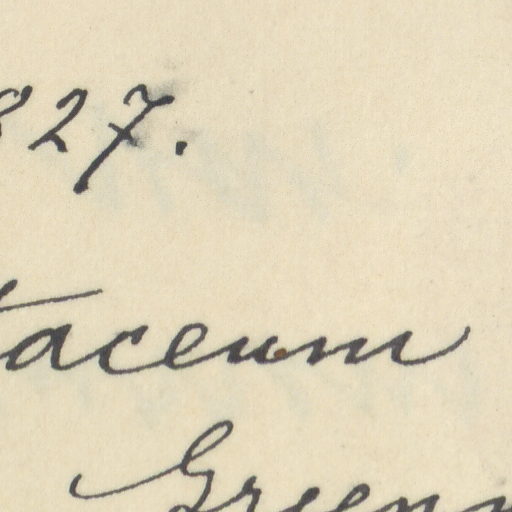 827.
taceum
Green